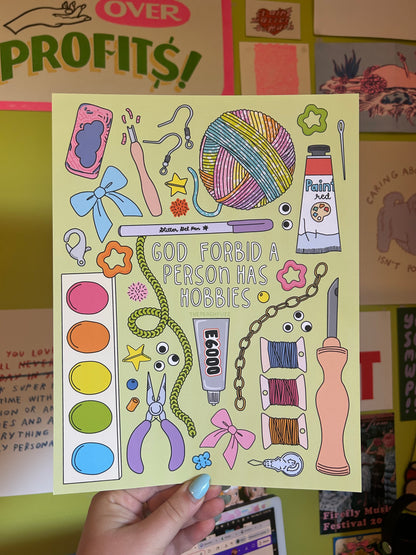 OVER
PROFIT$!
Paint
red
Glitter Gel Pen
GOD FORBID A
PERSON HAS
HOBBIES
THEPEACHFUZZ
E6000
CARING ABO
ISN'T
YOU LOVE
SUPER
TIME WITH
ION OR A
ES AND
RYTHING
LY PERSONA
Firefly Music
Festival 20